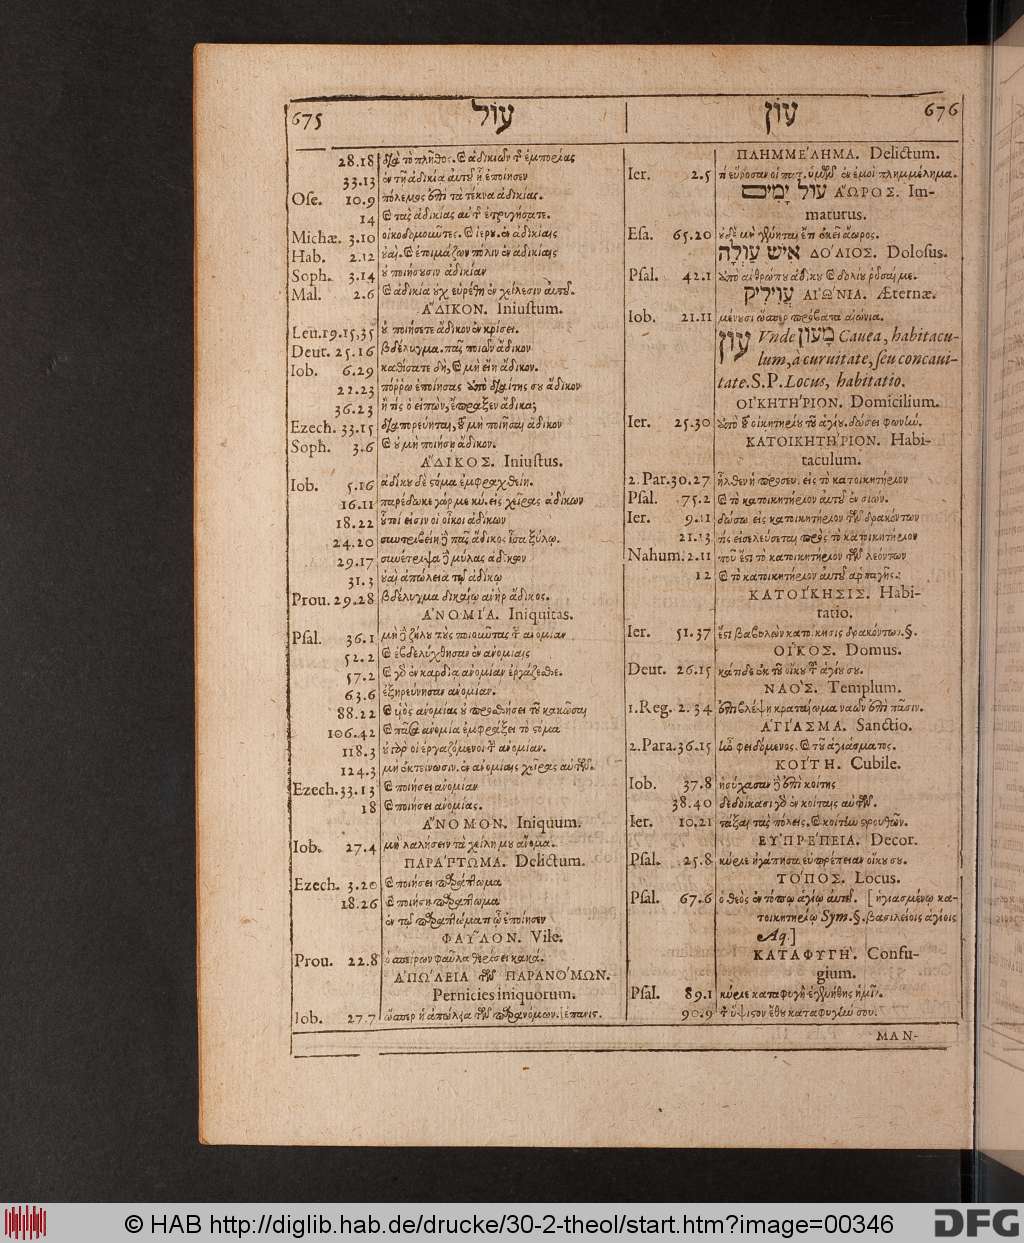 675 עול
28.18 διὰ τὸ πλῆθος. ἀδικιῶν τ͂ ἐμπορίας
33.13 ἐν τῇ ἀδικίᾳ αὐτοῦ ᾗ ἐποίησεν
Ose. 10.9 πόλεμος ἐπὶ τὰ τέκνα ἀδικίας.
14 τὰς ἀδικίας ἐτρυγήσατε.
Michæ. 3.10 οἰκοδομοῦντες. ἐν ἀδικίαις
Hab. 2.12 ἑτοιμάζων πόλιν ἐν ἀδικίαις
Soph. 3.14 οὐ ποιήσουσιν ἀδικίαν
Mal. 2.6 ἀδικία οὐχ εὑρέθη ἐν χείλεσιν αὐτοῦ.
ἌΔΙΚΟΝ. Iniustum.
Leu. 19.15,35 οὐ ποιήσετε ἄδικον ἐν κρίσει.
Deut. 25.16 βδέλυγμα. πᾶς ποιῶν ἄδικον
Iob. 6.29 καθίσατε δὴ, μὴ εἴη ἄδικον.
22.23 πόρρω ἐποίησας ἀπὸ διαίτης σου ἄδικον
36.23 ἢ τίς ὁ εἰπὼν, ἔπραξεν ἄδικα;
Ezech. 33.15 διαπορεύηται, μὴ ποιῆσαι ἄδικον
Soph. 3.6 οὐ μὴ ποιήσῃ ἄδικον.
ἌΔΙΚΟΣ. Iniustus.
Iob. 5.16 ἀδίκου δὲ στόμα ἐμφραχθείη.
16.11 παρέδωκε γάρ με κύ. εἰς χεῖρας ἀδίκων
18.22 οὗτοί εἰσιν οἱ οἶκοι ἀδίκων
24.20 συντριβείη πᾶς ἄδικος ἴσα ξύλῳ.
29.17 συνέτριψα μύλας ἀδίκων
31.3 οὐαὶ ἀπώλεια τῷ ἀδίκῳ
Prou. 29.28 βδέλυγμα δικαίῳ ἀνὴρ ἄδικος.
ἈΝΟΜΊΑ. Iniquitas.
Psal. 36.1 μὴ ζήλου τοὺς ποιοῦντας τ͂ ἀνομίαν
52.2 ἐβδελύχθησαν ἐν ἀνομίαις
57.2 ἐν καρδίᾳ ἀνομίαν ἐργάζεσθε.
63.6 ἐξηρεύνησαν ἀνομίαν.
88.22 υἱὸς ἀνομίας οὐ προσθήσει τοῦ κακῶσαι
106.42 πᾶσα ἀνομία ἐμφράξει τὸ στόμα
118.3 οὐ γὰρ οἱ ἐργαζόμενοι τ͂ ἀνομίαν.
124.3 μὴ ἐκτείνωσιν. ἐν ἀνομίαις χεῖρας αὐτῶν.
Ezech. 33.13 ποιήσει ἀνομίαν
18 ποιήσει ἀνομίας.
ἌΝΟΜΟΝ. Iniquum.
Iob. 27.4 μὴ λαλήσειν τὰ χείλη μου ἄνομα.
ΠΑΡΆΠΤΩΜΑ. Delictum.
Ezech. 3.20 ποιήσει παράπτωμα
18.26 ποιήσῃ παράπτωμα
ἐν τῷ παραπτώματι ᾧ ἐποίησεν
ΦΑΥ͂ΛΟΝ. Vile.
Prou. 22.8 ὁ σπείρων φαῦλα θερίσει κακά.
ἈΠΏΛΕΙΑ τῶν ΠΑΡΑΝΌΜΩΝ.
Pernicies iniquorum.
Iob. 27.7 ὥσπερ ἡ ἀπώλεια τῶν παρανόμων.
עון 676
ΠΛΗΜΜΈΛΗΜΑ. Delictum.
Ier. 2.5 τί εὕροσαν οἱ πατ. ὑμῶν ἐν ἐμοὶ πλημμέλημα.
עול ימים ἌΩΡΟΣ. Im-
maturus.
Esa. 65.20 οὐδὲ μὴ γένηται ἔτι ἐκεῖ ἄωρος.
איש עולה ΔΌΛΙΟΣ. Dolosus.
Psal. 42.1 ἀπὸ ἀνθρώπου ἀδίκου δολίου ῥῦσαί με.
עויליק ΑἸΏΝΙΑ. Æternæ.
Iob. 21.11 μένουσι ὥσπερ πρόβατα αἰώνια.
עון Vnde מעון Cauea, habitacu-
lum, à curuitate, seu concaui-
tate. S.P. Locus, habitatio.
ΟἸΚΗΤΉΡΙΟΝ. Domicilium.
Ier. 25.30 ἀπὸ τοῦ οἰκητηρίου τοῦ ἁγίου. δώσει φωνὴν.
ΚΑΤΟΙΚΗΤΉΡΙΟΝ. Habi-
taculum.
2. Par. 30.27 ἦλθεν ἡ προσευ. εἰς τὸ κατοικητήριον
Psal. 75.2 τὸ κατοικητήριον αὐτοῦ ἐν σιών.
Ier. 9.11 δώσω εἰς κατοικητήριον τῶν δρακόντων
21.13 τίς εἰσελεύσεται πρὸς τὸ κατοικητήριον
Nahum. 2.11 ποῦ ἐστι τὸ κατοικητήριον τῶν λεόντων
12 τὸ κατοικητήριον αὐτοῦ ἁρπαγῆς.
ΚΑΤΟΊΚΗΣΙΣ. Habi-
tatio.
Ier. 51.37 ἔσται βαβυλὼν κατοίκησις δρακόντων.§.
ΟἾΚΟΣ. Domus.
Deut. 26.15 κάτιδε ἐκ τοῦ οἴκου τ͂ ἁγίου σου.
ΝΑΌΣ. Templum.
1. Reg. 2.34 ἐπιβλέψῃ κραταίωμα ναῶν ἐπὶ πᾶσιν.
ἉΓΊΑΣΜΑ. Sanctio.
2. Para. 36.15 ἦν φειδόμενος. τοῦ ἁγιάσματος.
ΚΟΊΤΗ. Cubile.
Iob. 37.8 ἡσύχασαν ἐπὶ κοίτης
38.40 δεδοίκασι ἐν κοίταις αὐτῶν.
Ier. 10.21 τάξαι τὰς πόλεις. κοίτην στρουθῶν.
ΕΥ̓ΠΡΈΠΕΙΑ. Decor.
Psal. 25.8 κύριε ἠγάπησα εὐπρέπειαν οἴκου σου.
ΤΌΠΟΣ. Locus.
Psal. 67.6 ὁ θεὸς ἐν τόπῳ ἁγίῳ αὐτοῦ. [ἡγιασμένῳ κα-
τοικητηρίῳ Sym.§. βασιλείοις ἁγίοις
Aq.]
ΚΑΤΑΦΥΓΉ. Confu-
gium.
Psal. 89.1 κύριε καταφυγὴ ἐγενήθης ἡμῖν.
90.9 τ͂ ὕψιστον ἔθου καταφυγήν σου.
MAN-
© HAB http://diglib.hab.de/drucke/30-2-theol/start.htm?image=00346
DFG